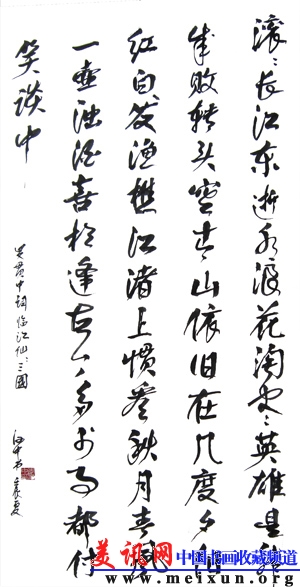 滚滚长江东逝水浪花淘尽英雄是非
成败转头空青山依旧在几度夕阳
红白发渔樵江渚上惯看秋月春风
一壶浊酒喜相逢古今多少事都付
笑谈中
贯中词临江仙三國
美讯网 中国书画收藏频道
www.meixun.org